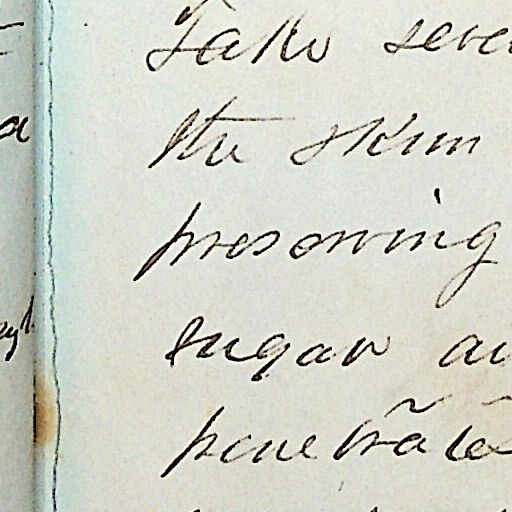 Take seve
the skin
preserving
sugar an
penetrates